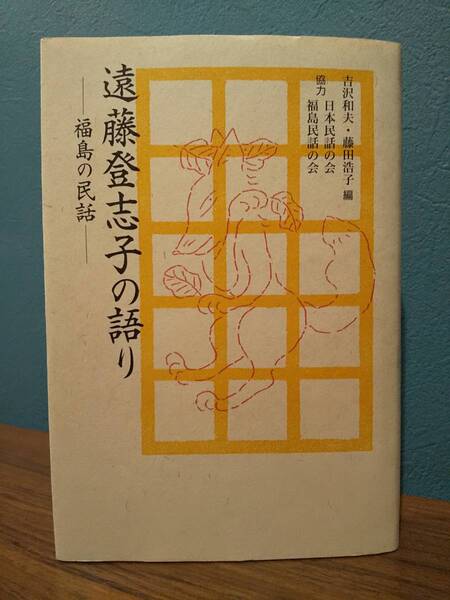 吉沢和夫・藤田浩子 編
協力 日本民話の会
福島民話の会
遠藤登志子の語り
―福島の民話―